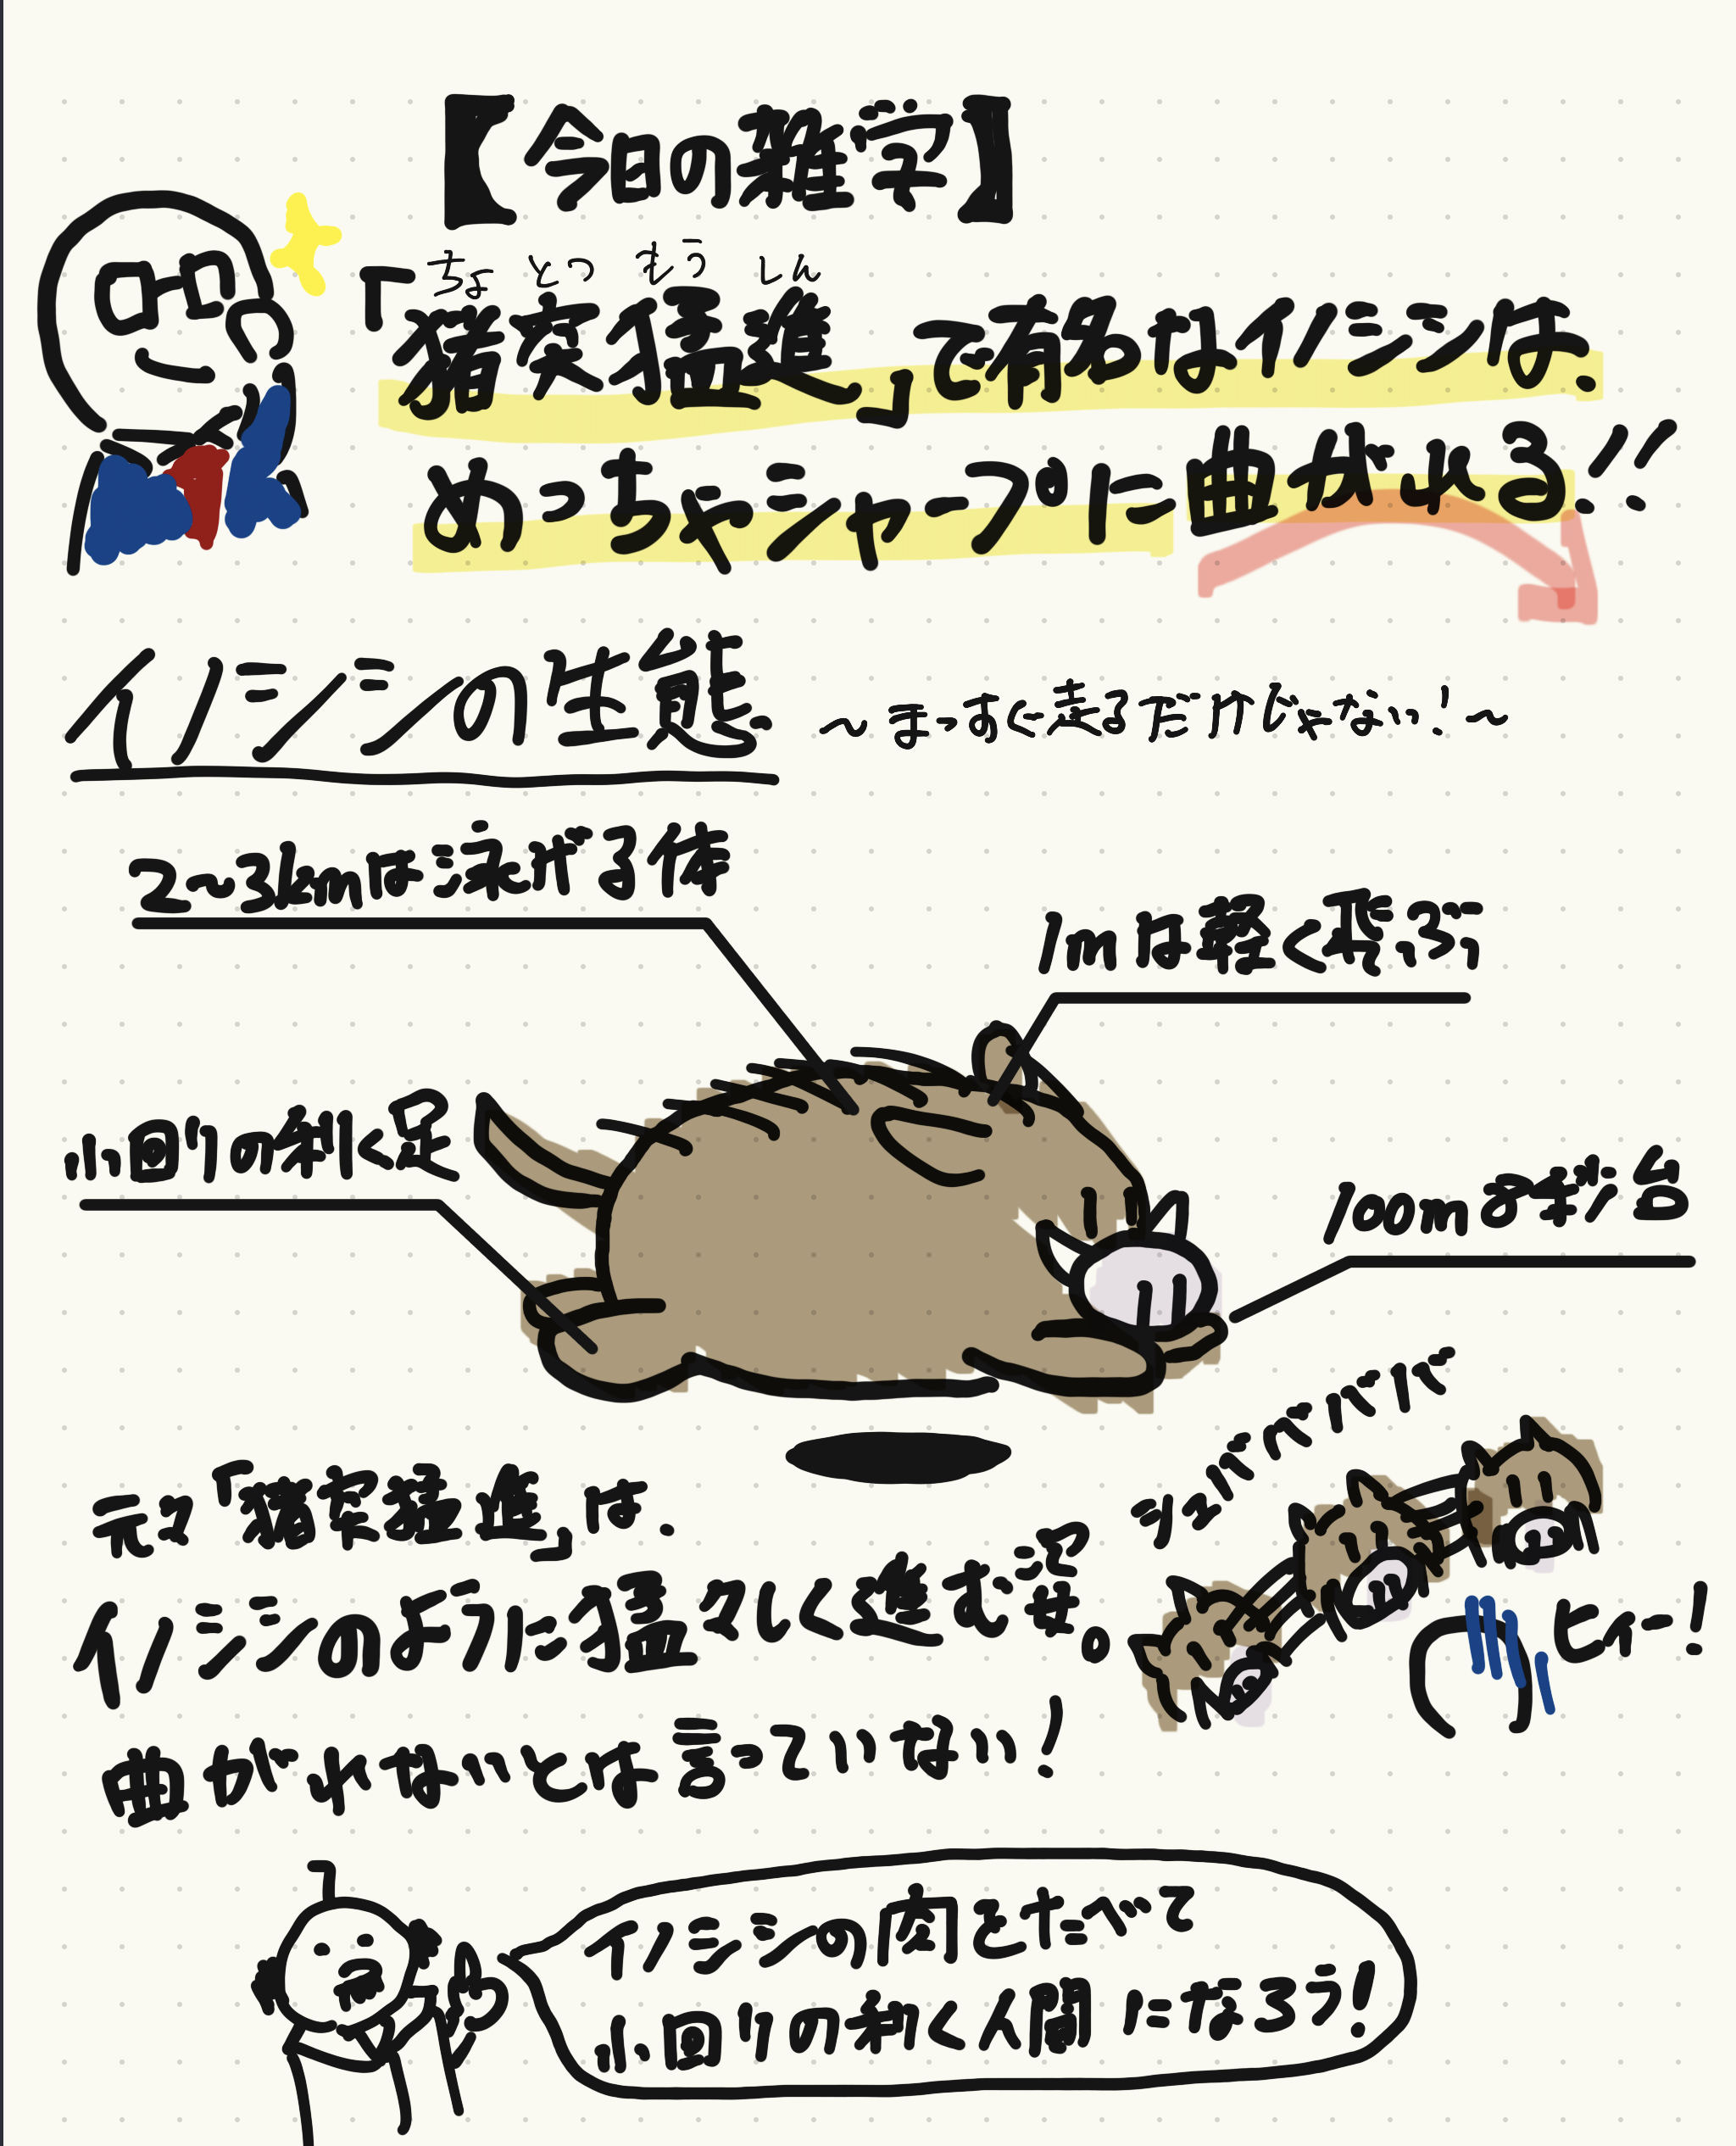 【今日の雑学】
ちょとつもうしん
「猪突猛進」で有名なイノシシは、
めっちゃシャープに曲がれる!!
イノシシの生態
～まっすぐ走るだけじゃない!～
2~3kmは泳げる体
1mは軽く飛ぶ
小回りの利く足
100m8秒台
元々「猪突猛進」は、
イノシシのように猛々しく進む姿。
曲がれないとは言っていない!
ヒィー!
イノシシの肉をたべて
小回りの利く人間になろう!